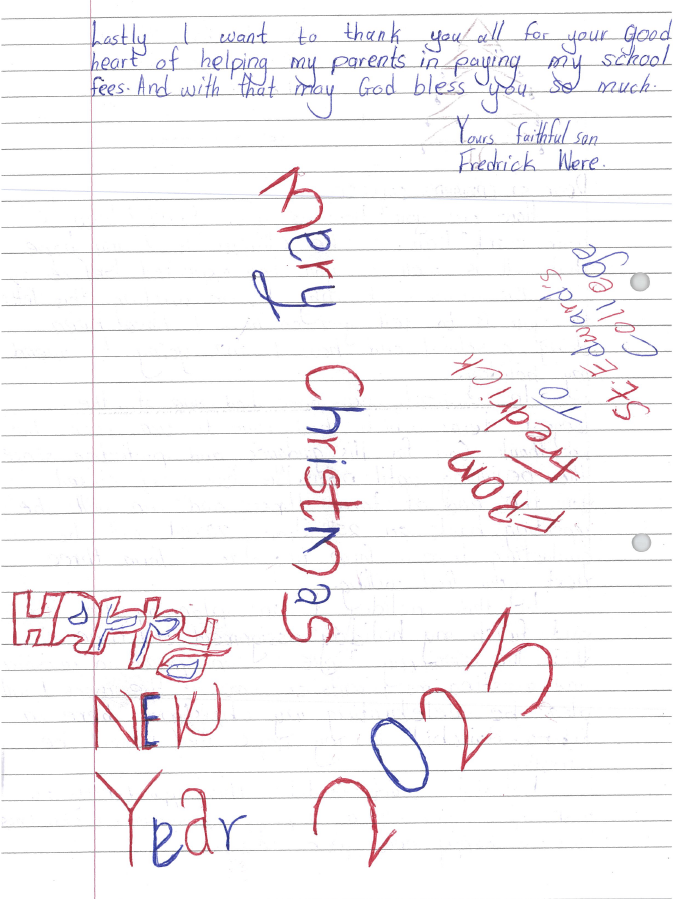 Lastly I want to thank you all for your Good
heart of helping my parents in paying my school
fees. And with that may God bless you so much.
Yours faithful son
Fredrick Were.
Mery
Christmas
FROM
Fredrick O
St. Edward's
College
HAppy
NEW
Year
2023